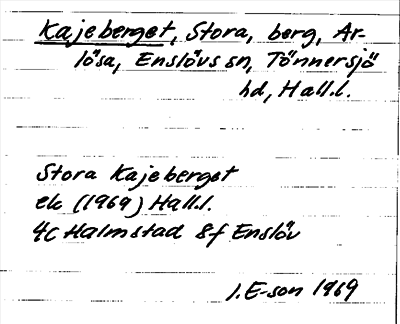 Kajeberget, Stora, berg, Ar-
lösa, Enslövs sn, Tönnersjö
hd, Hall.l.
Stora Kajeberget
ek (1969) Hall.l.
4C Halmstad 8f Enslöv
I. E-son 1969